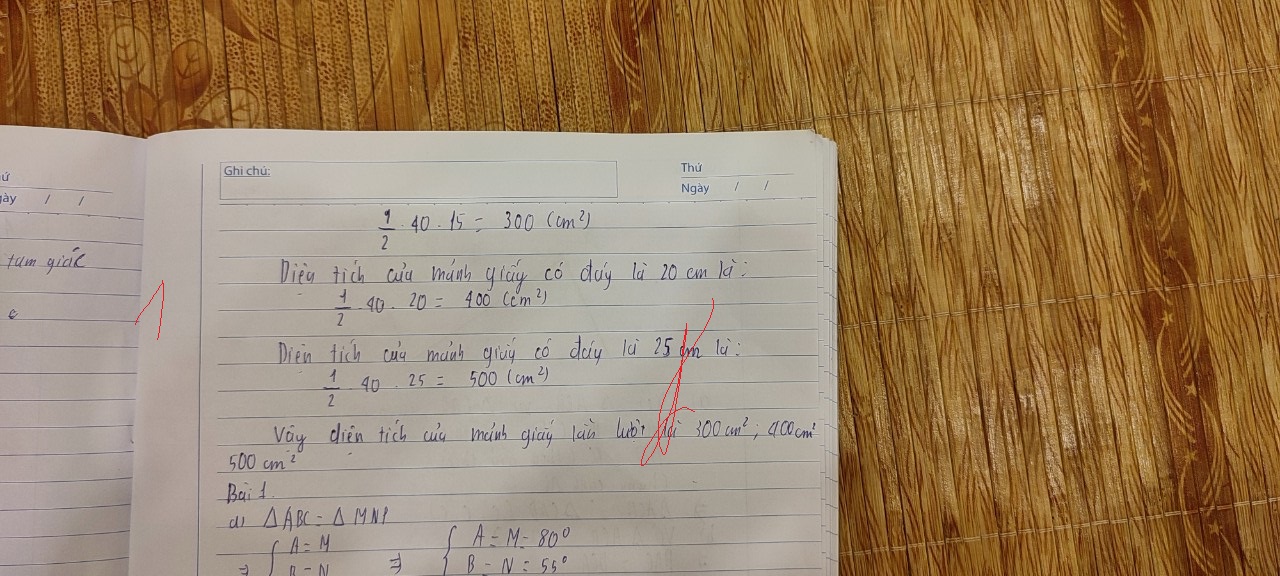 Ghi chú:
Thứ
Ngày / /
ứ
gày / /
tam giác
c
1/2 . 40 . 15 = 300 (cm²)
Diện tích của mảnh giấy có đáy là 20 cm là:
1/2 . 40 . 20 = 400 (cm²)
Diện tích của mảnh giấy có đáy là 25 cm là:
1/2 . 40 . 25 = 500 (cm²)
Vậy diện tích của mảnh giấy lần lượt là 300 cm²; 400 cm²
500 cm²
Bài 1.
a) ΔABC = ΔMNP
⇒ { A = M ⇒ { A = M = 80°
B = N B = N = 55°
1